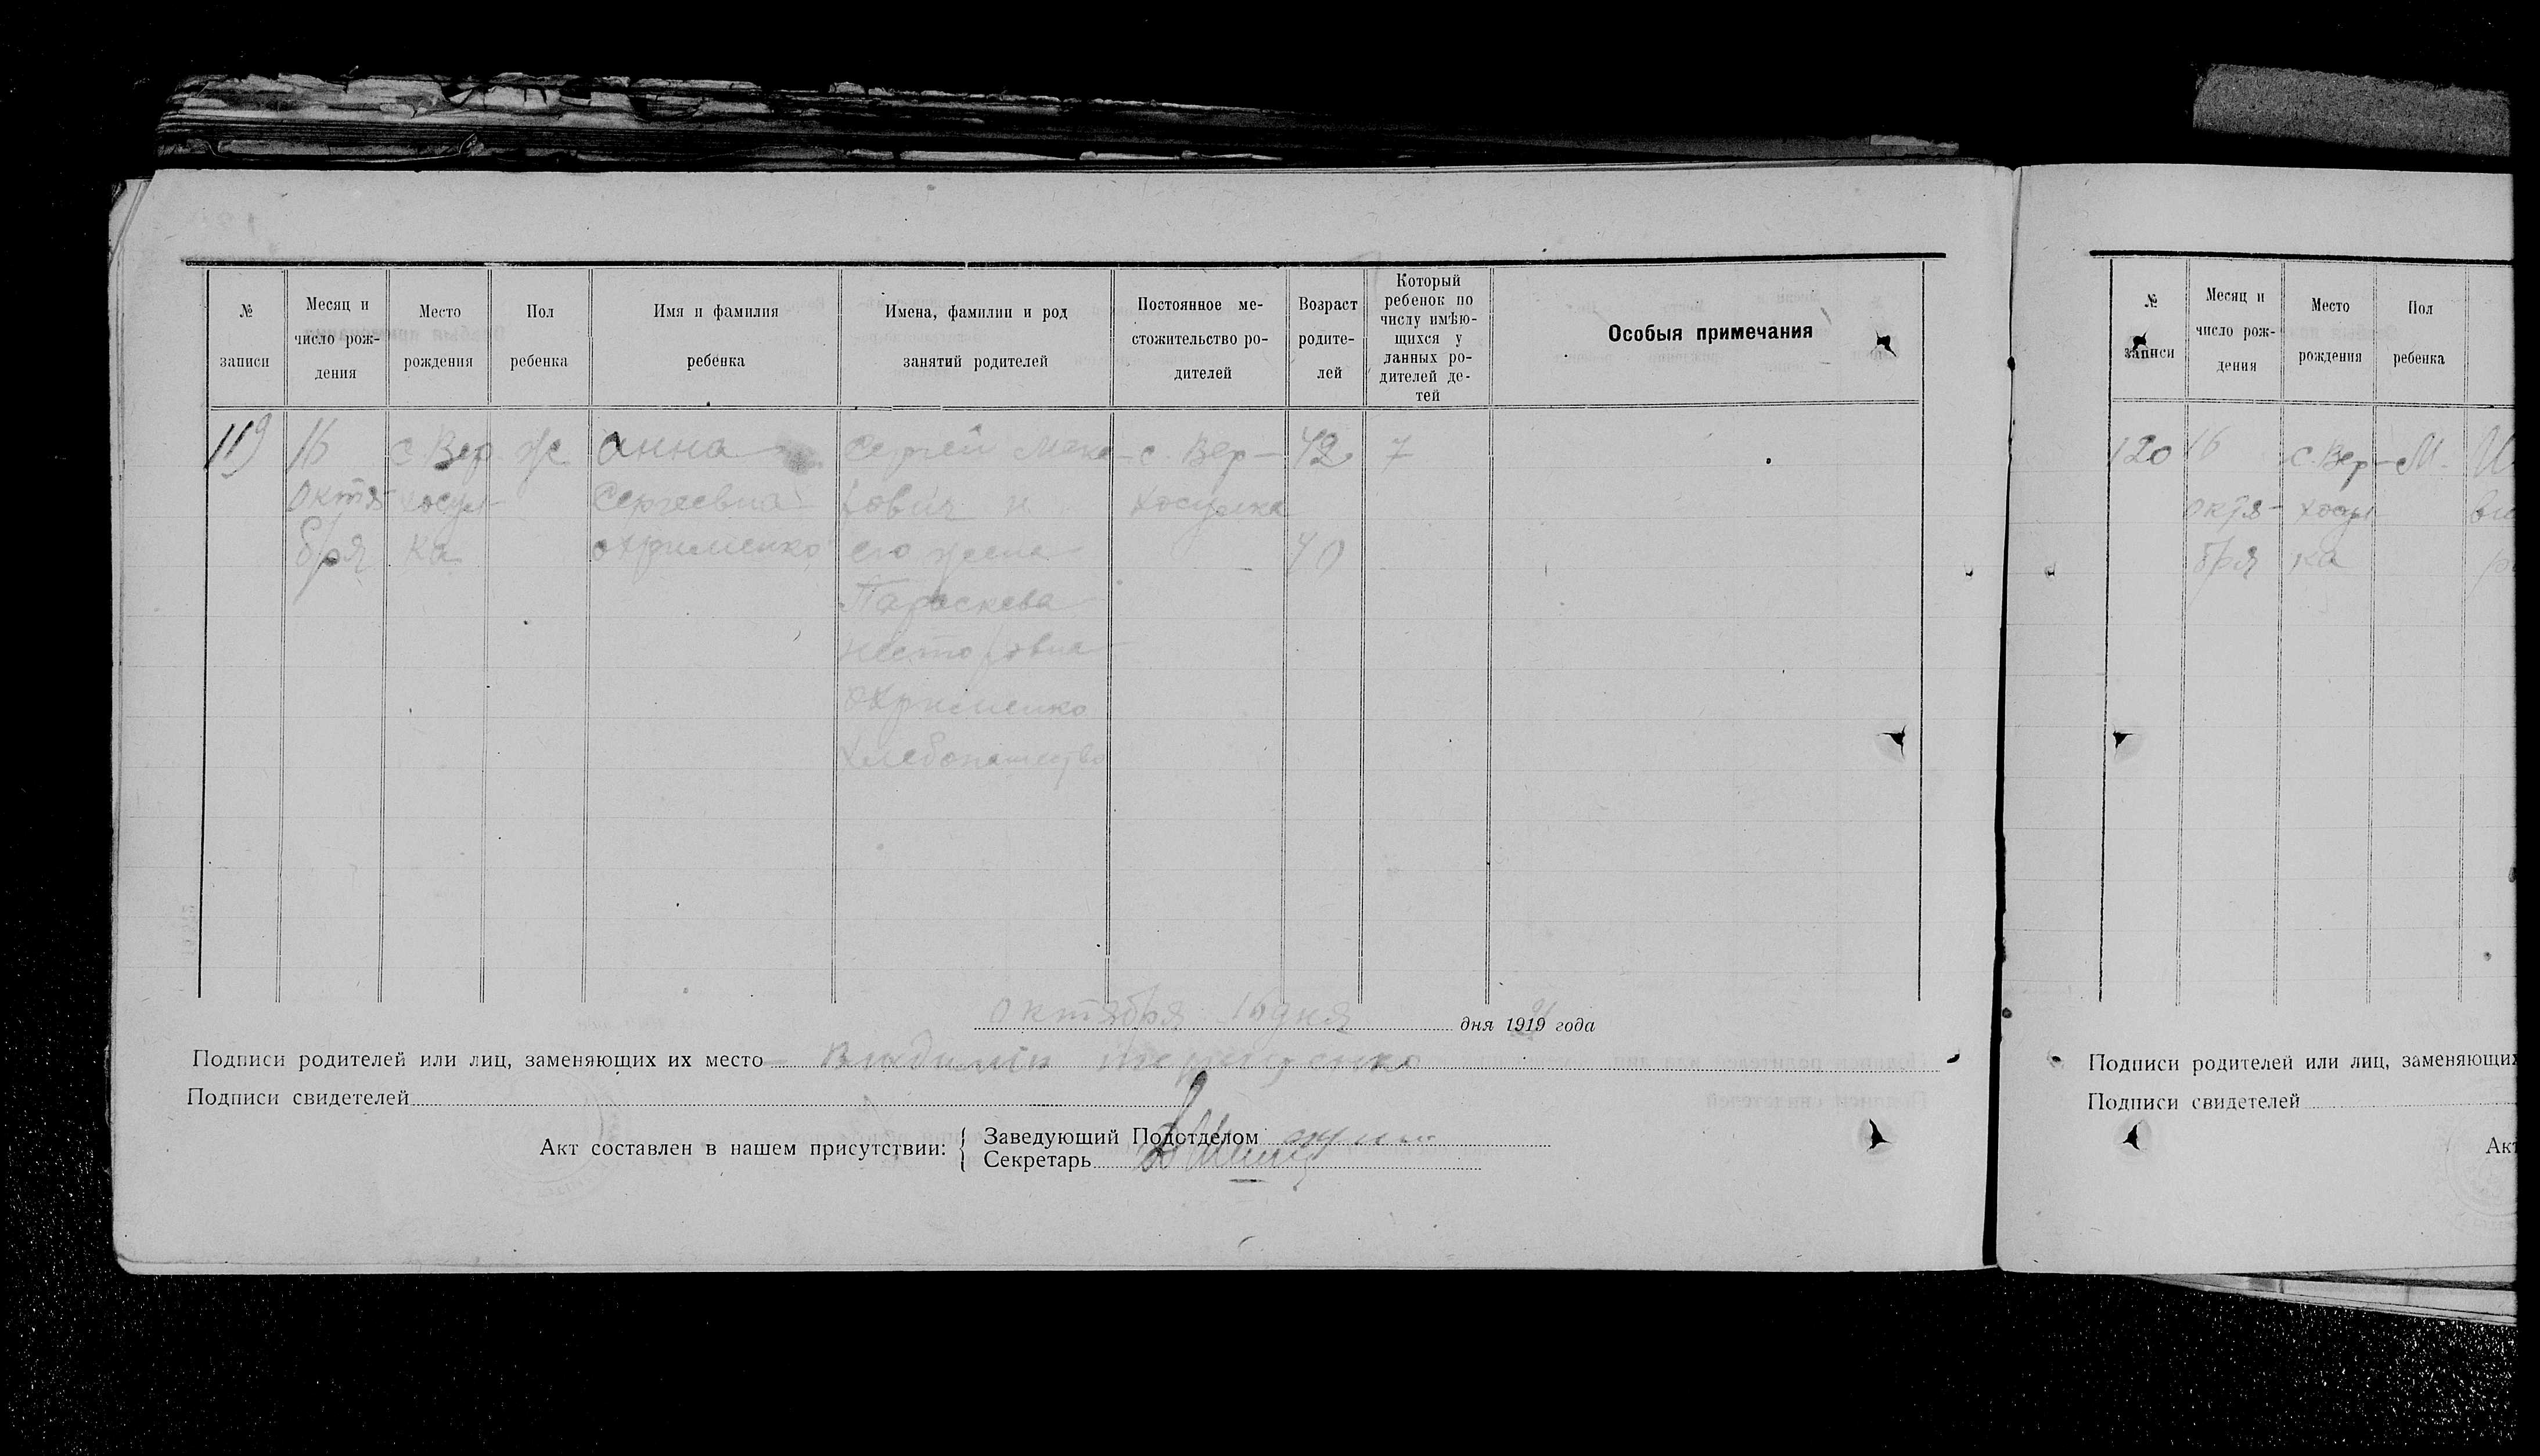 № записи
Месяц и число рож-дения
Место рождения
Пол ребенка
Имя и фамилия ребенка
Имена, фамилии и род занятий родителей
Постоянное ме-стожительство ро-дителей
Возраст родите-лей
Который ребенок по числу имѣю-щихся у данных ро-дителей де-тей
Особыя примечания
119
16
октя
бря
с. Вер
хосул-
ка
Ж
Анна
Сергеевна
Охрименко
Сергей Мака-
рович и
его жена
Параскева
Несторовна
Охрименко
Хлебопашество
с Вер-
хосулка
42
40
7
октября 16 дня дня 1919 года
Подписи родителей или лиц, заменяющих их место
Подписи свидетелей
Акт составлен в нашем присутствии:
Заведующий Подотделом
Секретарь
№ записи
Месяц и число рож-дения
Место рождения
Пол ребенка
120
16
октя-
бря
с. Вер-
хосул
ка
М.
Подписи родителей или лиц, заменяющих
Подписи свидетелей